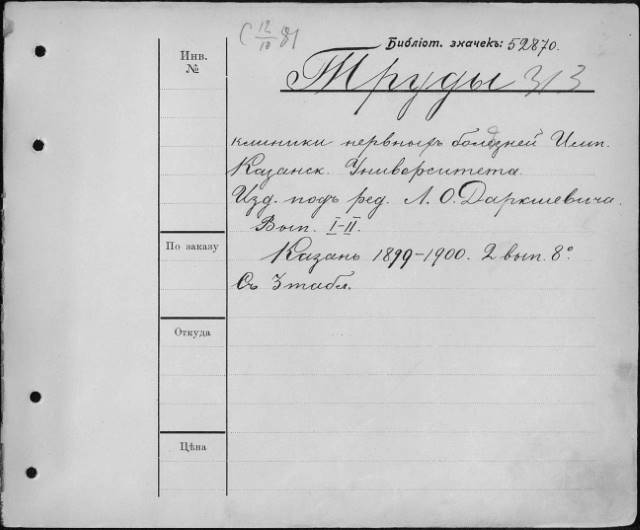 С 12/10 81
Библіот. значекъ: 52870.
Инв.
№
Труды 313
клиники нервныхъ болѣзней Имп.
Казанск. Университета.
Изд. подъ ред. Л. О. Даркшевича.
Вып. I-II.
По заказу
Казань 1899-1900. 2 вып. 8°
Съ 3 табл.
Откуда
Цѣна